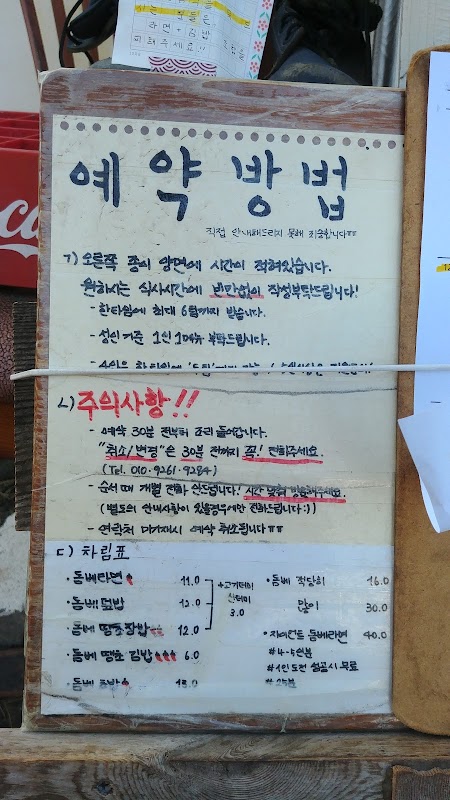 라면+김밥
피해주세요!!
Co
예약방법
직접 안내해드리지 못해 죄송합니다ㅠㅠ
ㄱ) 오른쪽 종이 양면에 시간이 적혀있습니다.
원하시는 식사시간에 빈칸없이 작성부탁드립니다!
- 한타임에 최대 6팀까지 받습니다.
- 성인 기준 1인 1메뉴 부탁드립니다.
ㄴ) 주의사항!!
- 예약 30분 전부터 조리 들어갑니다.
"취소/변경"은 30분 전까지 꼭! 전화주세요.
(Tel. 010-9261-9284)
- 순서 때 개별 전화 안드립니다! 시간 맞춰 방문해주세요.
(별도의 안내사항이 있을경우에만 전화드립니다:))
- 연락처 미기재시 예약 취소됩니다ㅠㅠ
ㄷ) 차림표
·돔베라면 11.0
·돔베덮밥 12.0
돔베 땡초장밥 12.0
·돔베 땡초 김밥 6.0
·돔베 13.0
+고기데미
3.0
·돔베 적당히 16.0
많이 30.0
·자이언트 돔베라면 40.0
#4-5인분
#1인 도전 성공시 무료
#25분